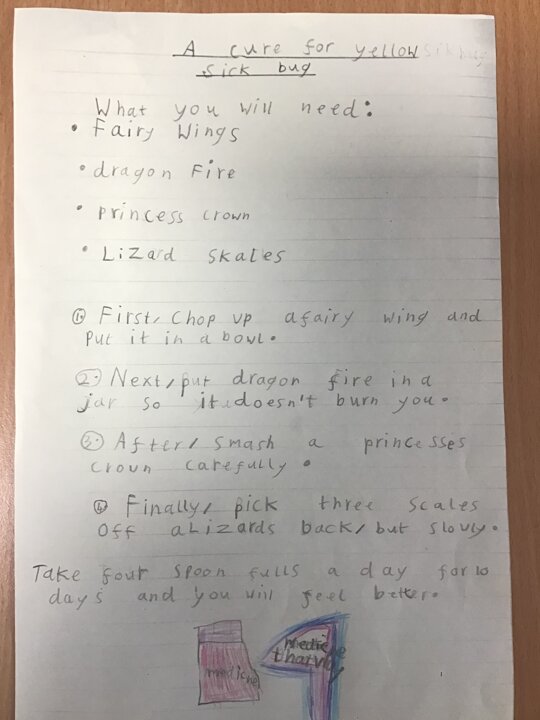 A cure for yellow
Sick bug
What you will need:
• Fairy Wings
• dragon Fire
• princess crown
• Lizard skales
1. First, chop up a fairy wing and
put it in a bowl.
2. Next, put dragon fire in a
jar so it doesn't burn you.
3. After, smash a princesses
crown carefully.
4. Finally, pick three scales
off a Lizards back, but slowly.
Take four spoon fulls a day for 10
days and you will feel better.
medicine
medicine
that way